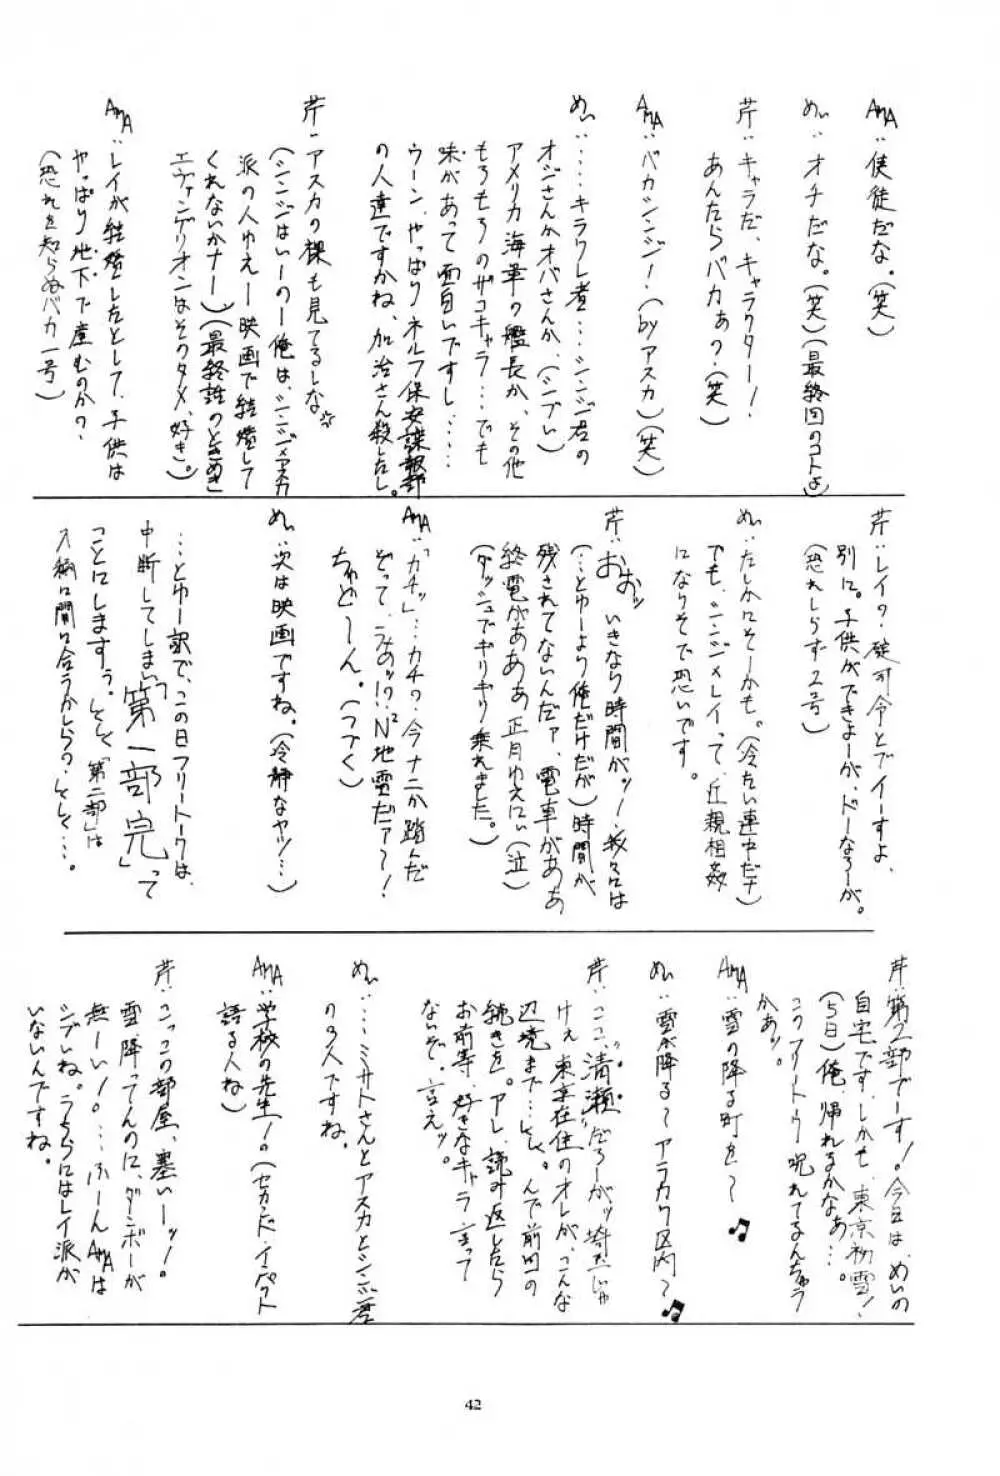 AMA:使徒だな。(笑)
めい:オチだな。(笑)(最終回のコトよ)
芹:キャラだ、キャラクター!
あんたらバカぁ?(笑)
AMA:バカシンジ!(byアスカ)(笑)
めい:…キラワレ者…シンジ君の
オジさんかオバさんか、(シブい)
アメリカ海軍の艦長か、その他
もろもろのザコキャラ…でも
味があって面白いですし……
ウーン、やっぱりネルフ保安諜報部
の人達ですかね、加治さん殺したし。
芹:アスカの裸も見てるしな
(シンジはいーのー俺は、シンジ×アスカ
派の人ゆえー映画で結婚して
くれないかナー)(最終話のときめき
エヴァンゲリオンはそのタメ、好き。)
AMA:レイが結婚したとして、子供は
やっぱり地下で産むのかの?
(恐れを知らぬバカ一号)
芹:レイの?碇司令とでイーすよ、
別に。子供ができよーが、ドーなろーが。
(恐れしらず2号)
めい:たしかにそーかも。(冷たい連中だナ)
でも、シンジ×レイって、近親相姦
になりそで恐いです。
芹:おおッ いきなり時間がッ!我々には
(…とゆーより俺だけだが)時間が
残されてないんだァ、電車がああ
終電があああ正月ゆえにぃ(泣)
(ダッシュでギリギリ乗れました。)
AMA:「カチッ」…カチ?今ナニか踏んだ
ぞって、うおッ!?N²地雷だァ〜!
ちゅどーん。(つづく)
めい:次は映画ですね。(冷静なヤツ!…)
…とゆー訳で、この日フリートークは、
中断してしまい「第一部完」って
ことにしますぅ。しくしく「第二部」は
入稿に間に合うかしらの?しくしく…。
芹:第2部でーす!。今日は、めいの
自宅です、しかも、東京初雪!
(5日)俺、帰れるかなぁ…。
このフリートーク呪れてるんちゃう
かぁッ。
AMA:雪の降る町を〜♫
めい:雪が降る〜アラカワ区内〜♫
芹:ココ、"清瀬"だろーがッ埼玉じゃ
けぇ東京在住のオレが、こんな
辺境まで…しくしく。んで前回の
続きを。アレ、読み返したら
お前等、好きなキャラ言って
ないぞ。言えッ。
めい:…ミサトさんとアスカとシンジ君
の3人ですね。
AMA:学校の先生!の(セカンド・インパクト
語る人ね)
芹:こっこの部屋、寒いーッ!。
雪、降ってんのに、ダンボーが
無ーい!。…ふーんAMAは
シブいね。うちらにはレイ派が
いないんですね。
42